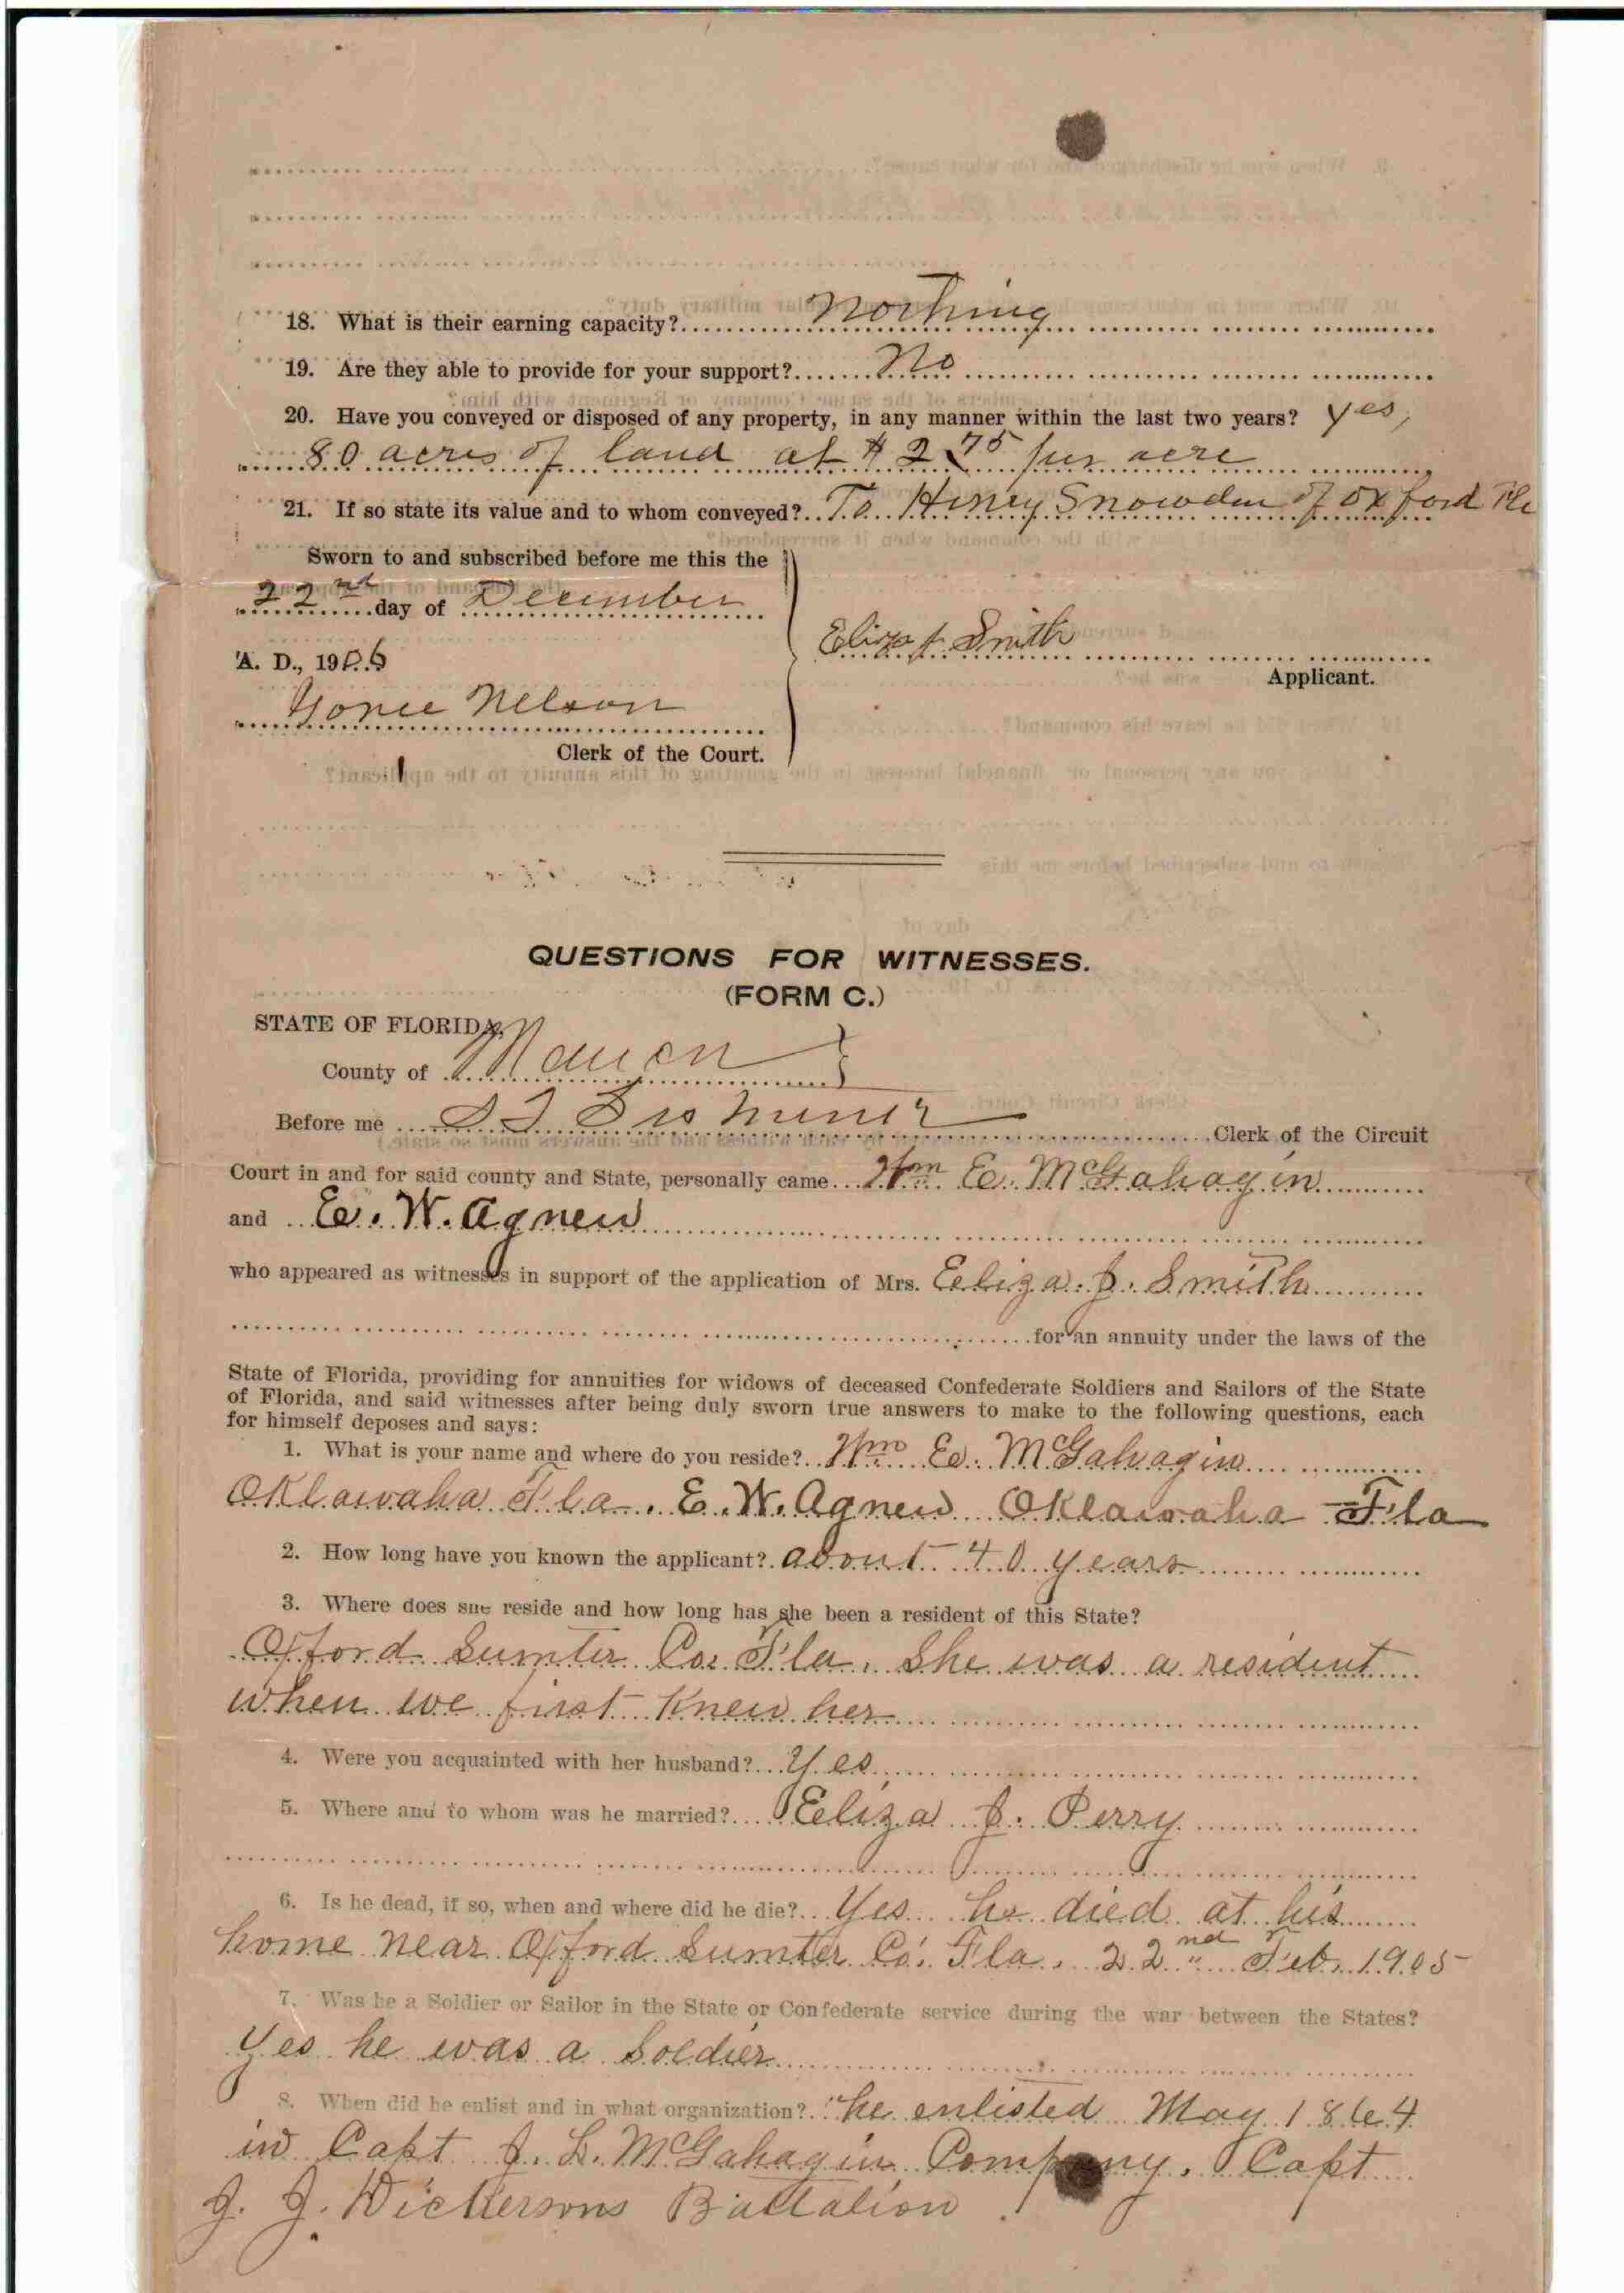 18. What is their earning capacity? Nothing
19. Are they able to provide for your support? No
20. Have you conveyed or disposed of any property, in any manner within the last two years? yes,
80 acres of land at $2 75 per acre
21. If so state its value and to whom conveyed? To Henry Snowden of Oxford Fla
Sworn to and subscribed before me this the
22nd day of December
A. D., 1906
Eliza J Smith
Applicant.
Nelson
Clerk of the Court.
QUESTIONS FOR WITNESSES.
(FORM C.)
STATE OF FLORIDA,
County of Marion
Before me S T Sistrunk Clerk of the Circuit
Court in and for said county and State, personally came Wm E. McGahagin
and E. W. Agnew
who appeared as witnesses in support of the application of Mrs. Eliza J. Smith
for an annuity under the laws of the
State of Florida, providing for annuities for widows of deceased Confederate Soldiers and Sailors of the State
of Florida, and said witnesses after being duly sworn true answers to make to the following questions, each
for himself deposes and says:
1. What is your name and where do you reside? Wm E. McGahagin
Oklawaha Fla. E. W. Agnew Oklawaha Fla
2. How long have you known the applicant? about 40 years
3. Where does she reside and how long has she been a resident of this State?
Oxford Sumter Co. Fla. She was a resident
when we first Knew her
4. Were you acquainted with her husband? Yes
5. Where and to whom was he married? Eliza J. Perry
6. Is he dead, if so, when and where did he die? Yes he died at his
home near Oxford Sumter Co. Fla. 22nd Feb. 1905
7. Was he a Soldier or Sailor in the State or Confederate service during the war between the States?
Yes he was a Soldier
8. When did he enlist and in what organization? he enlisted May 1864
in Capt J. L. McGahagin Company. Capt
J. J. Dickersons Battalion